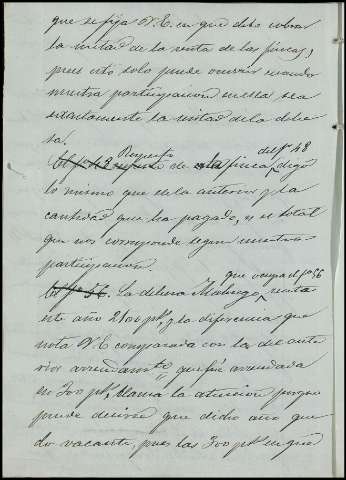 que se fija V.E. en que debe cobrar
la mitad de la renta de las fincas,
pues esto solo puede ocurrir cuando
nuestra participacion en ella sea
exactamente la mitad de la dehe
sa.
El fº 48 Respecto de la finca del fº 48 digo
lo mismo que de la anterior y la
cantidad que ha pagado, es el total
que nos corresponde segun nuestra
participacion.
El fº 56. La dehesa Malugo que ocupa el fº 56 renta
este año 2100 ptˢ, y la diferencia que
nota V.E. comparada con la del ante
rior arrendamᵗᵒ, que fué arrendada
en 300 ptˢ, llama la atencion porque
puede decirse que dicho año que
dó vacante, pues las 300 ptˢ en que